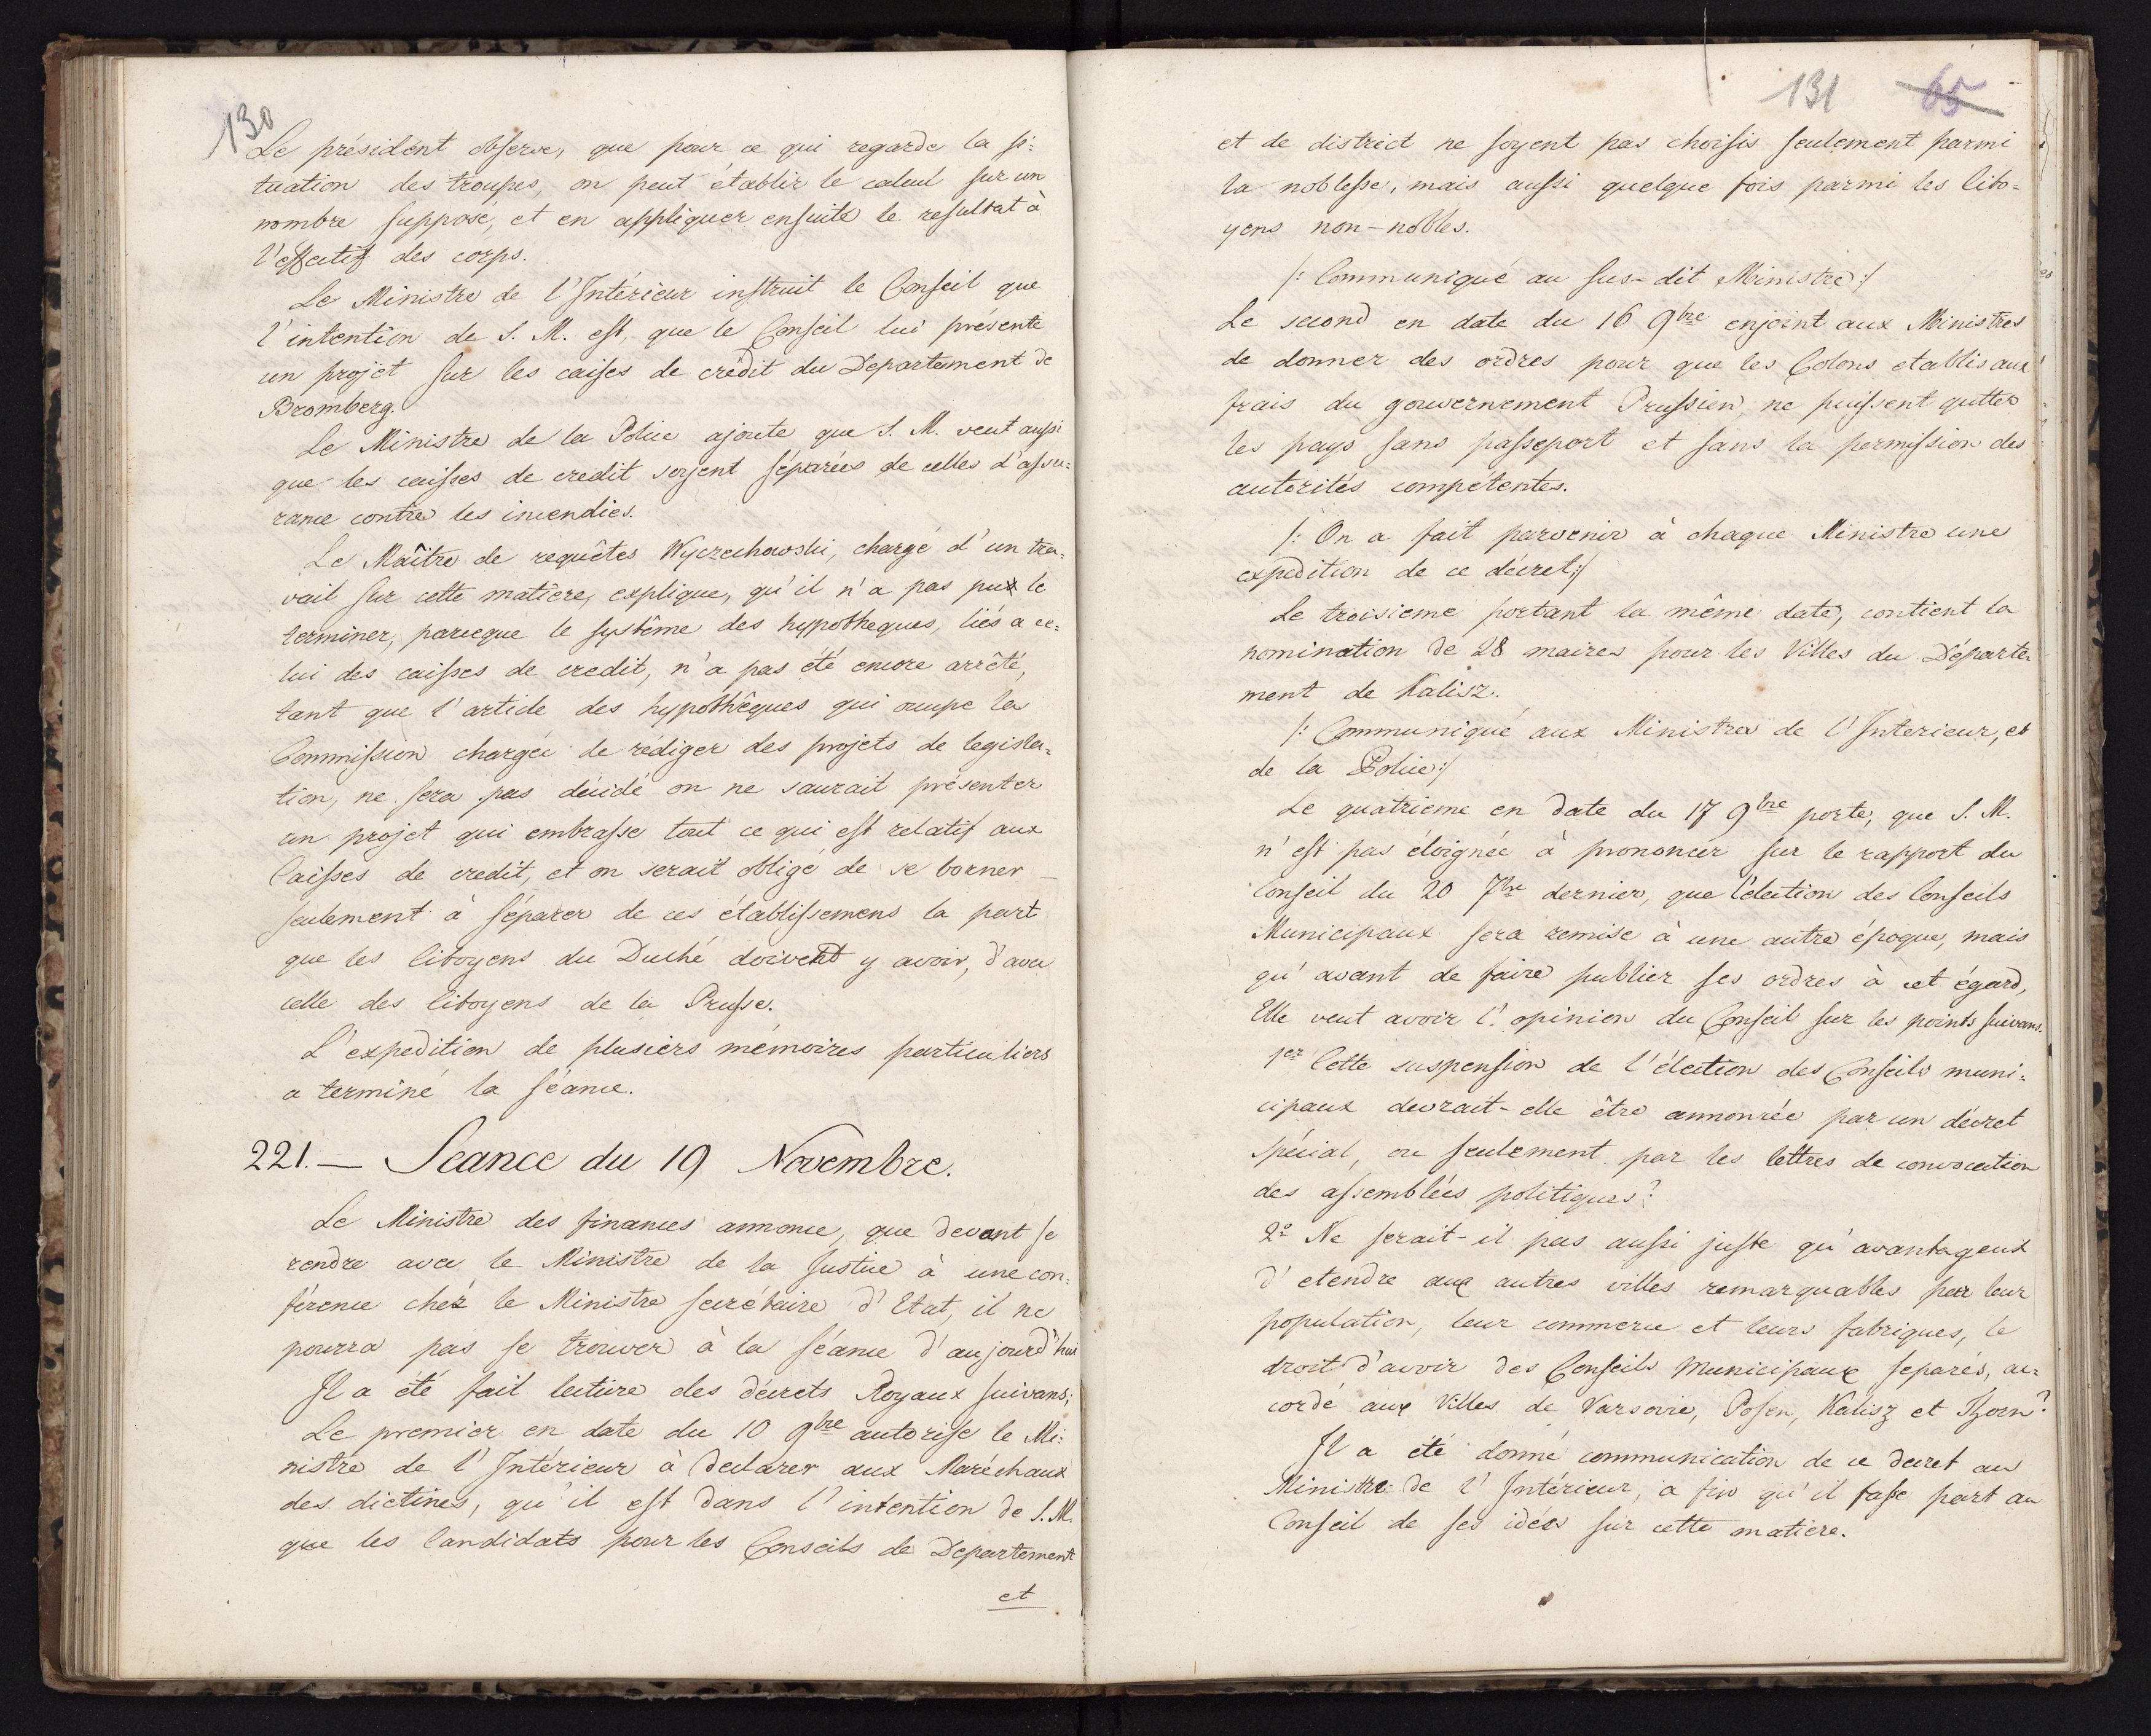 130
Le président observe, que pour ce qui regarde la si=
tuation des troupes, on peut établir le calcul sur un
nombre supposé, et en appliquer ensuite le resultat à
l'effectif des corps.
Le Ministre de l'Intérieur instruit le Conseil que
l'intention de S. M. est, que le Conseil lui présente
un projet sur les caisses de crédit du Departement de
Bromberg.
Le Ministre de la Police ajoute que S. M. veut aussi
que les caisses de credit soyent séparées de celles d'assu=
rance contre les incendies.
Le Maître de requêtes Wyczechowski, chargé d'un tra=
vail sur cette matière, explique, qu'il n'a pas pu le
terminer, parceque le systême des hypotheques, liés a ce=
lui des caisses de credit, n'a pas été encore arrêté,
tant que l'article des hypothêques qui occupe la
Commission chargée de rédiger des projets de legisla=
tion, ne sera pas décidé on ne saurait présenter
un projet qui embrasse tout ce qui est relatif aux
Caisses de credit, et on serait obligé de se borner –
seulement à séparer de ces établissemens la part
que les Citoyens du Duché doivent y avoir, d'avec
celle des Citoyens de la Prusse.
L'expedition de plusiers mémoires particuliers
a terminé la séance.
221. — Seance du 19 Novembre.
Le Ministre des finances annonce, que devant se
rendre avec le Ministre de la Justice à une con=
férence chéz le Ministre secrétaire d'Etat, il ne
pourra pas se trouver à la séance d'aujourd'hui
Il a été fait lecture des décrets Royaux suivans;
Le premier en date du 10 9bre autorise le Mi=
nistre de l'Intérieur à declarer aux Maréchaux
des dietines, qu'il est dans l'intention de S. M.
que les Candidats pour les Conseils de Departement
et
131 65
et de district ne soyent pas choisis seulement parmi
la noblesse, mais aussi quelque fois parmi les Cito=
yens non-nobles.
/: Communiqué au sus-dit Ministre :/
Le second en date du 16 9bre enjoint aux Ministres
de donner des ordres pour que les Colons etablis aux
frais du gouvernement Prussien, ne puissent quitter
les pays sans passeport et sans la permission des
autorités compétentes.
/: On a fait parvenir à chaque Ministre une
expedition de ce décret :/
Le troisieme portant la même date, contient la
nomination de 28 maires pour les Villes du Départe=
ment de Kalisz.
/: Communiqué aux Ministres de l'Interieur, et
de la Police :/
Le quatrieme en date du 17 9bre porte, que S. M.
n'est pas éloignée à prononcer sur le rapport du
Conseil du 20 7bre dernier, que l'élection des Conseils
Municipaux sera remise à une autre époque, mais
qu'avant de faire publier ses ordres à cet égard,
Elle veut avoir l'opinion du Conseil sur les points suivans.
1er Cette suspension de l'élection des Conseils muni=
cipaux devrait-elle être annoncée par un décret
spécial, ou seulement par les lettres de convocation
des assemblées politiques?
2o Ne serait-il pas aussi juste qu'avantageux
d'etendre aux autres villes remarquables par leur
population, leur commerce et leurs fabriques, le
droit d'avoir des Conseils Municipaux separés, ac=
cordé aux Villes de Varsovie, Posen, Kalisz et Thorn?
Il a été donné communication de ce decret au
Ministre de l'Intérieur, a fin qu'il fasse part au
Conseil de ses idées sur cette matiere.